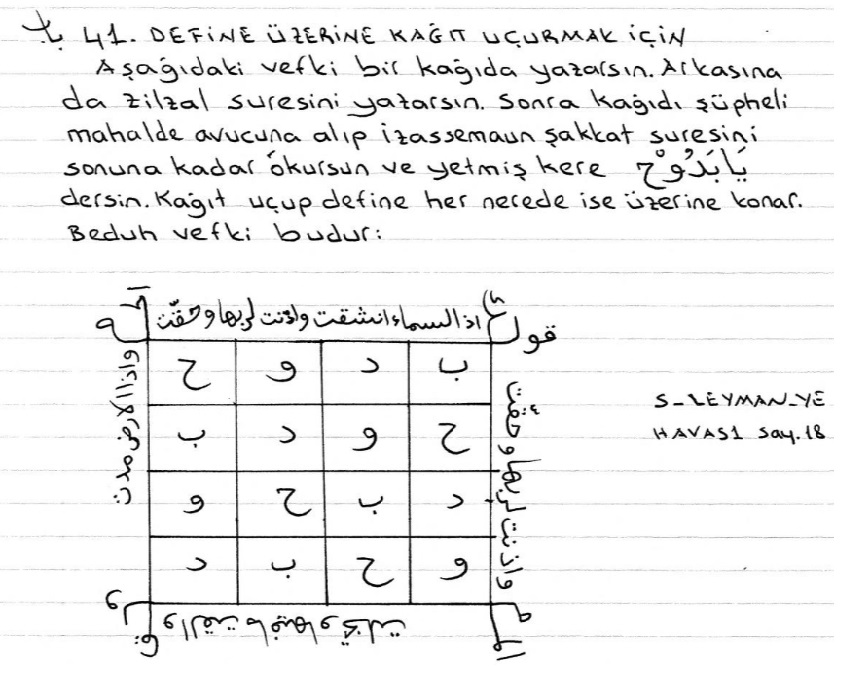 41. DEFİNE ÜZERİNE KAĞIT UÇURMAK İÇİN
Aşağıdaki vefki bir kağıda yazarsın. Arkasına
da zilzal suresini yazarsın. Sonra kağıdı şüpheli
mahalde avucuna alıp izassemaun şakkat suresini
sonuna kadar okursun ve yetmiş kere يَابَدُوْحْ
dersin. Kağıt uçup define her nerede ise üzerine konar.
Beduh vefki budur:
اذا السماء انشقت واذنت لربها وحقت
قوله
ب د و ح
ح و د ب
د ب ح و
و ح ب د
واذنت لربها وحقت
واذا الارض مدت
والقت ما فيها وتخلت
S_LEYMAN_YE
HAVASI Say. 18